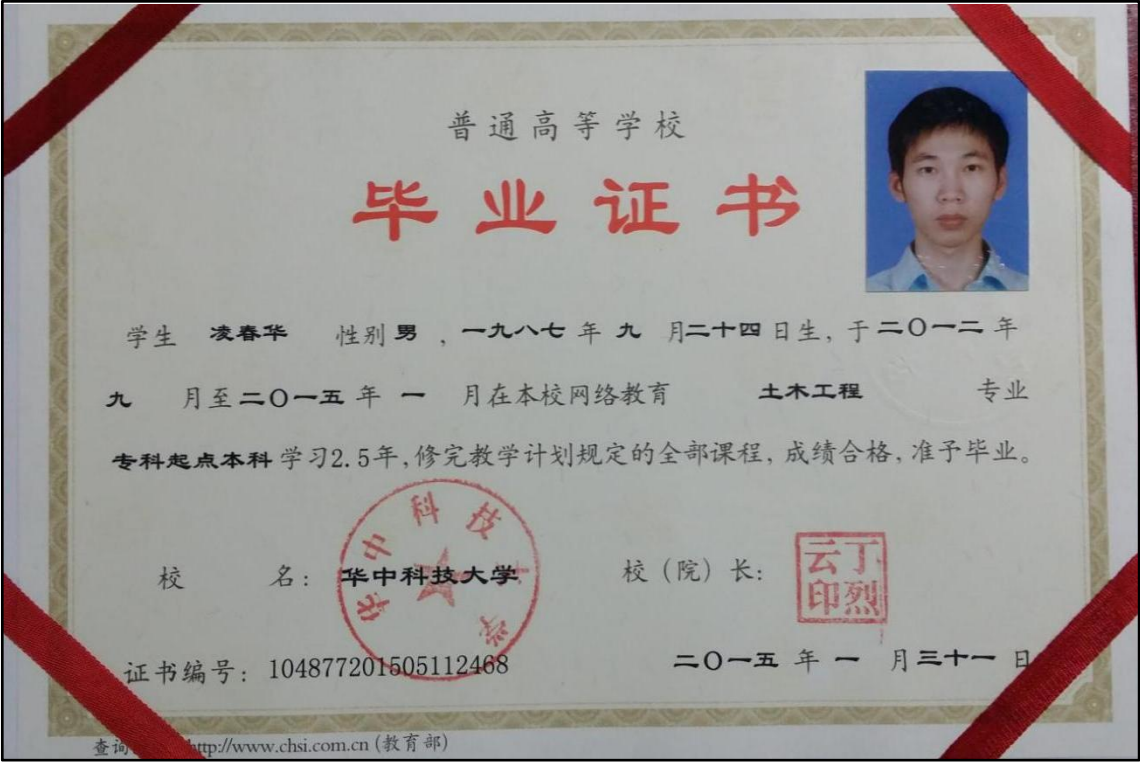 普通高等学校
毕业证书
学生 凌春华 性别 男 ,一九八七 年 九 月二十四日生,于二〇一二 年
九 月至二〇一五 年 一 月在本校网络教育 土木工程 专业
专科起点本科 学习2.5年,修完教学计划规定的全部课程,成绩合格,准予毕业。
校 名: 华中科技大学 校(院)长:
华中科技大学
丁烈云印
证书编号: 104877201505112468 二〇一五 年 一 月三十一 日
查询 http://www.chsi.com.cn (教育部)